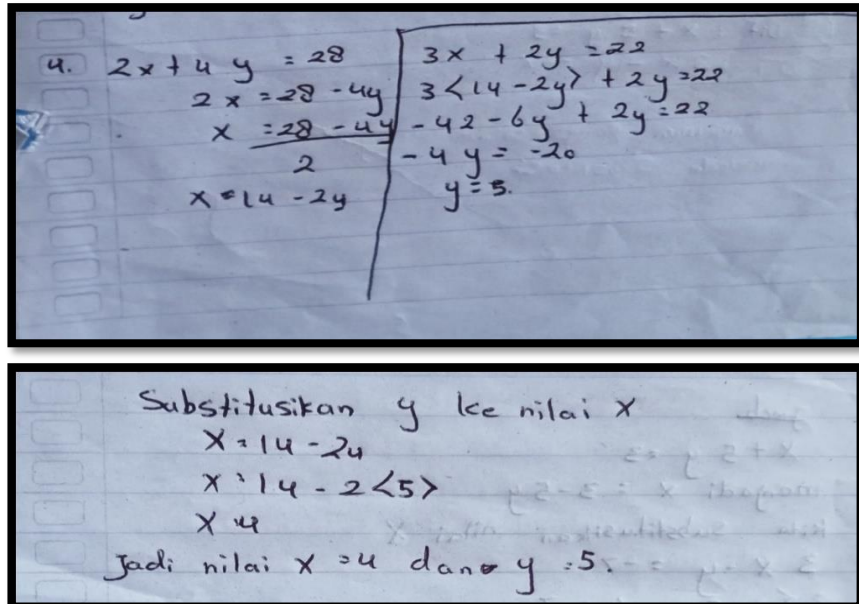 4. 2x + 4y = 28
2x = 28 - 4y
x = 28 - 4y
2
x = 14 - 2y
3x + 2y = 22
3<14 - 2y> + 2y = 22
- 42 - 6y + 2y = 22
- 4y = -20
y = 5.
Substitusikan y ke nilai x
x = 14 - 2y
x = 14 - 2<5>
x = 4
Jadi nilai x = 4 dan y = 5.